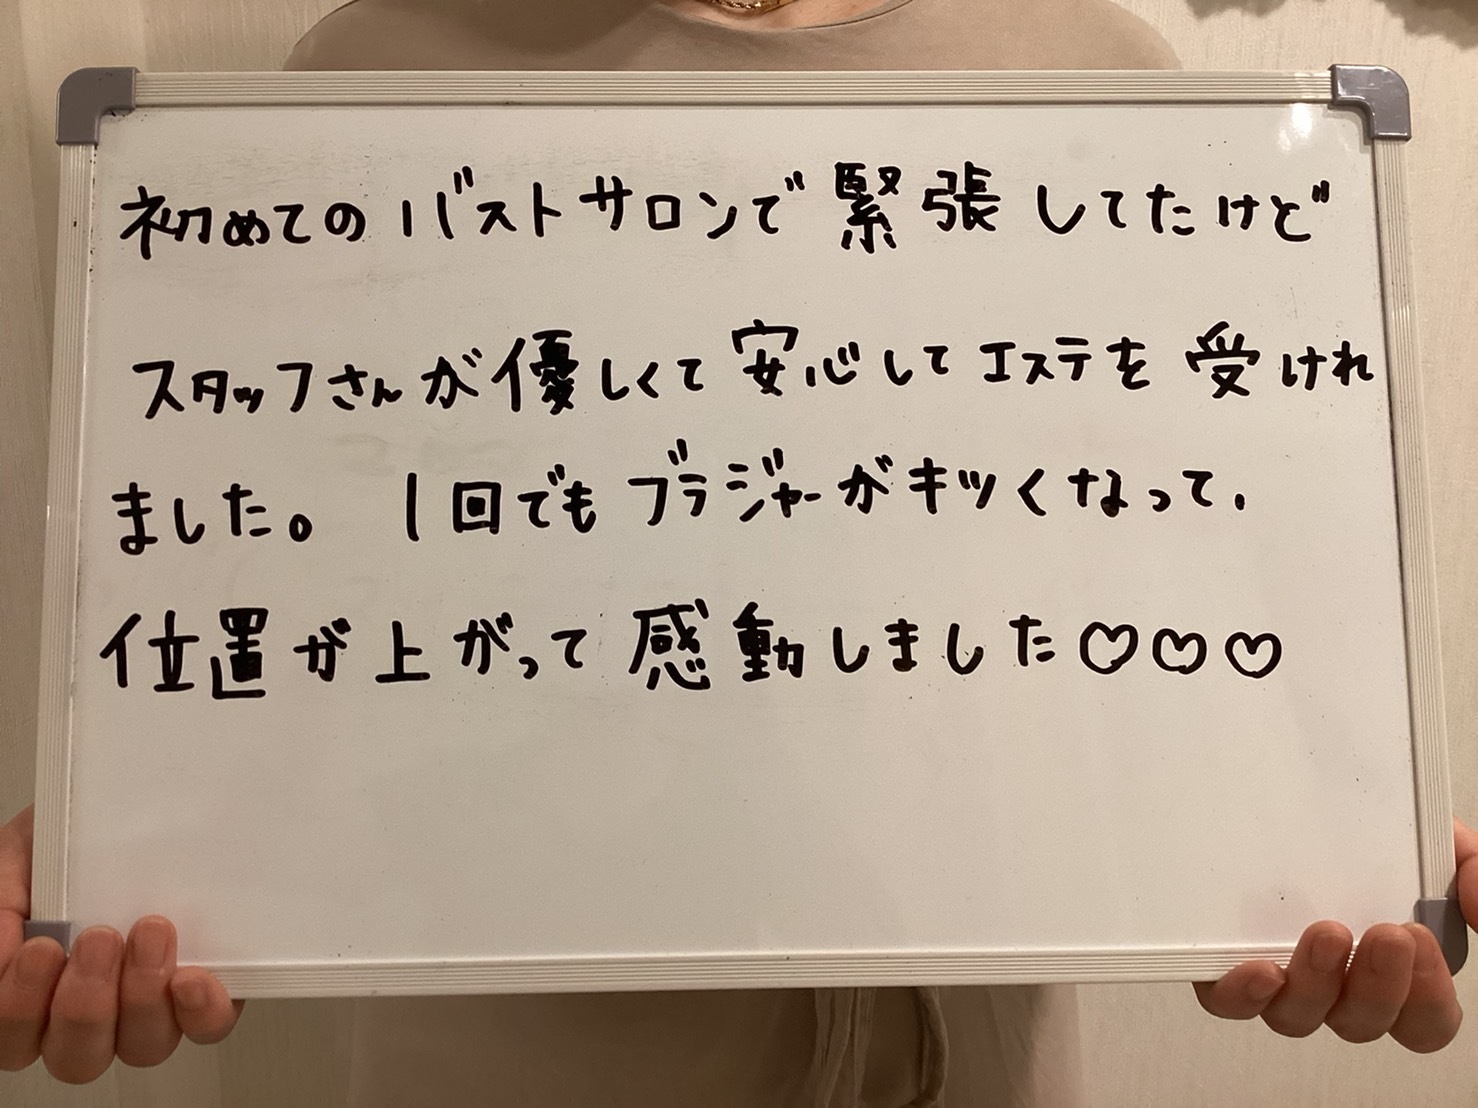 初めてのバストサロンで緊張してたけど
スタッフさんが優しくて安心してエステを受けれ
ました。1回でもブラジャーがキツくなって、
位置が上がって感動しました♡♡♡